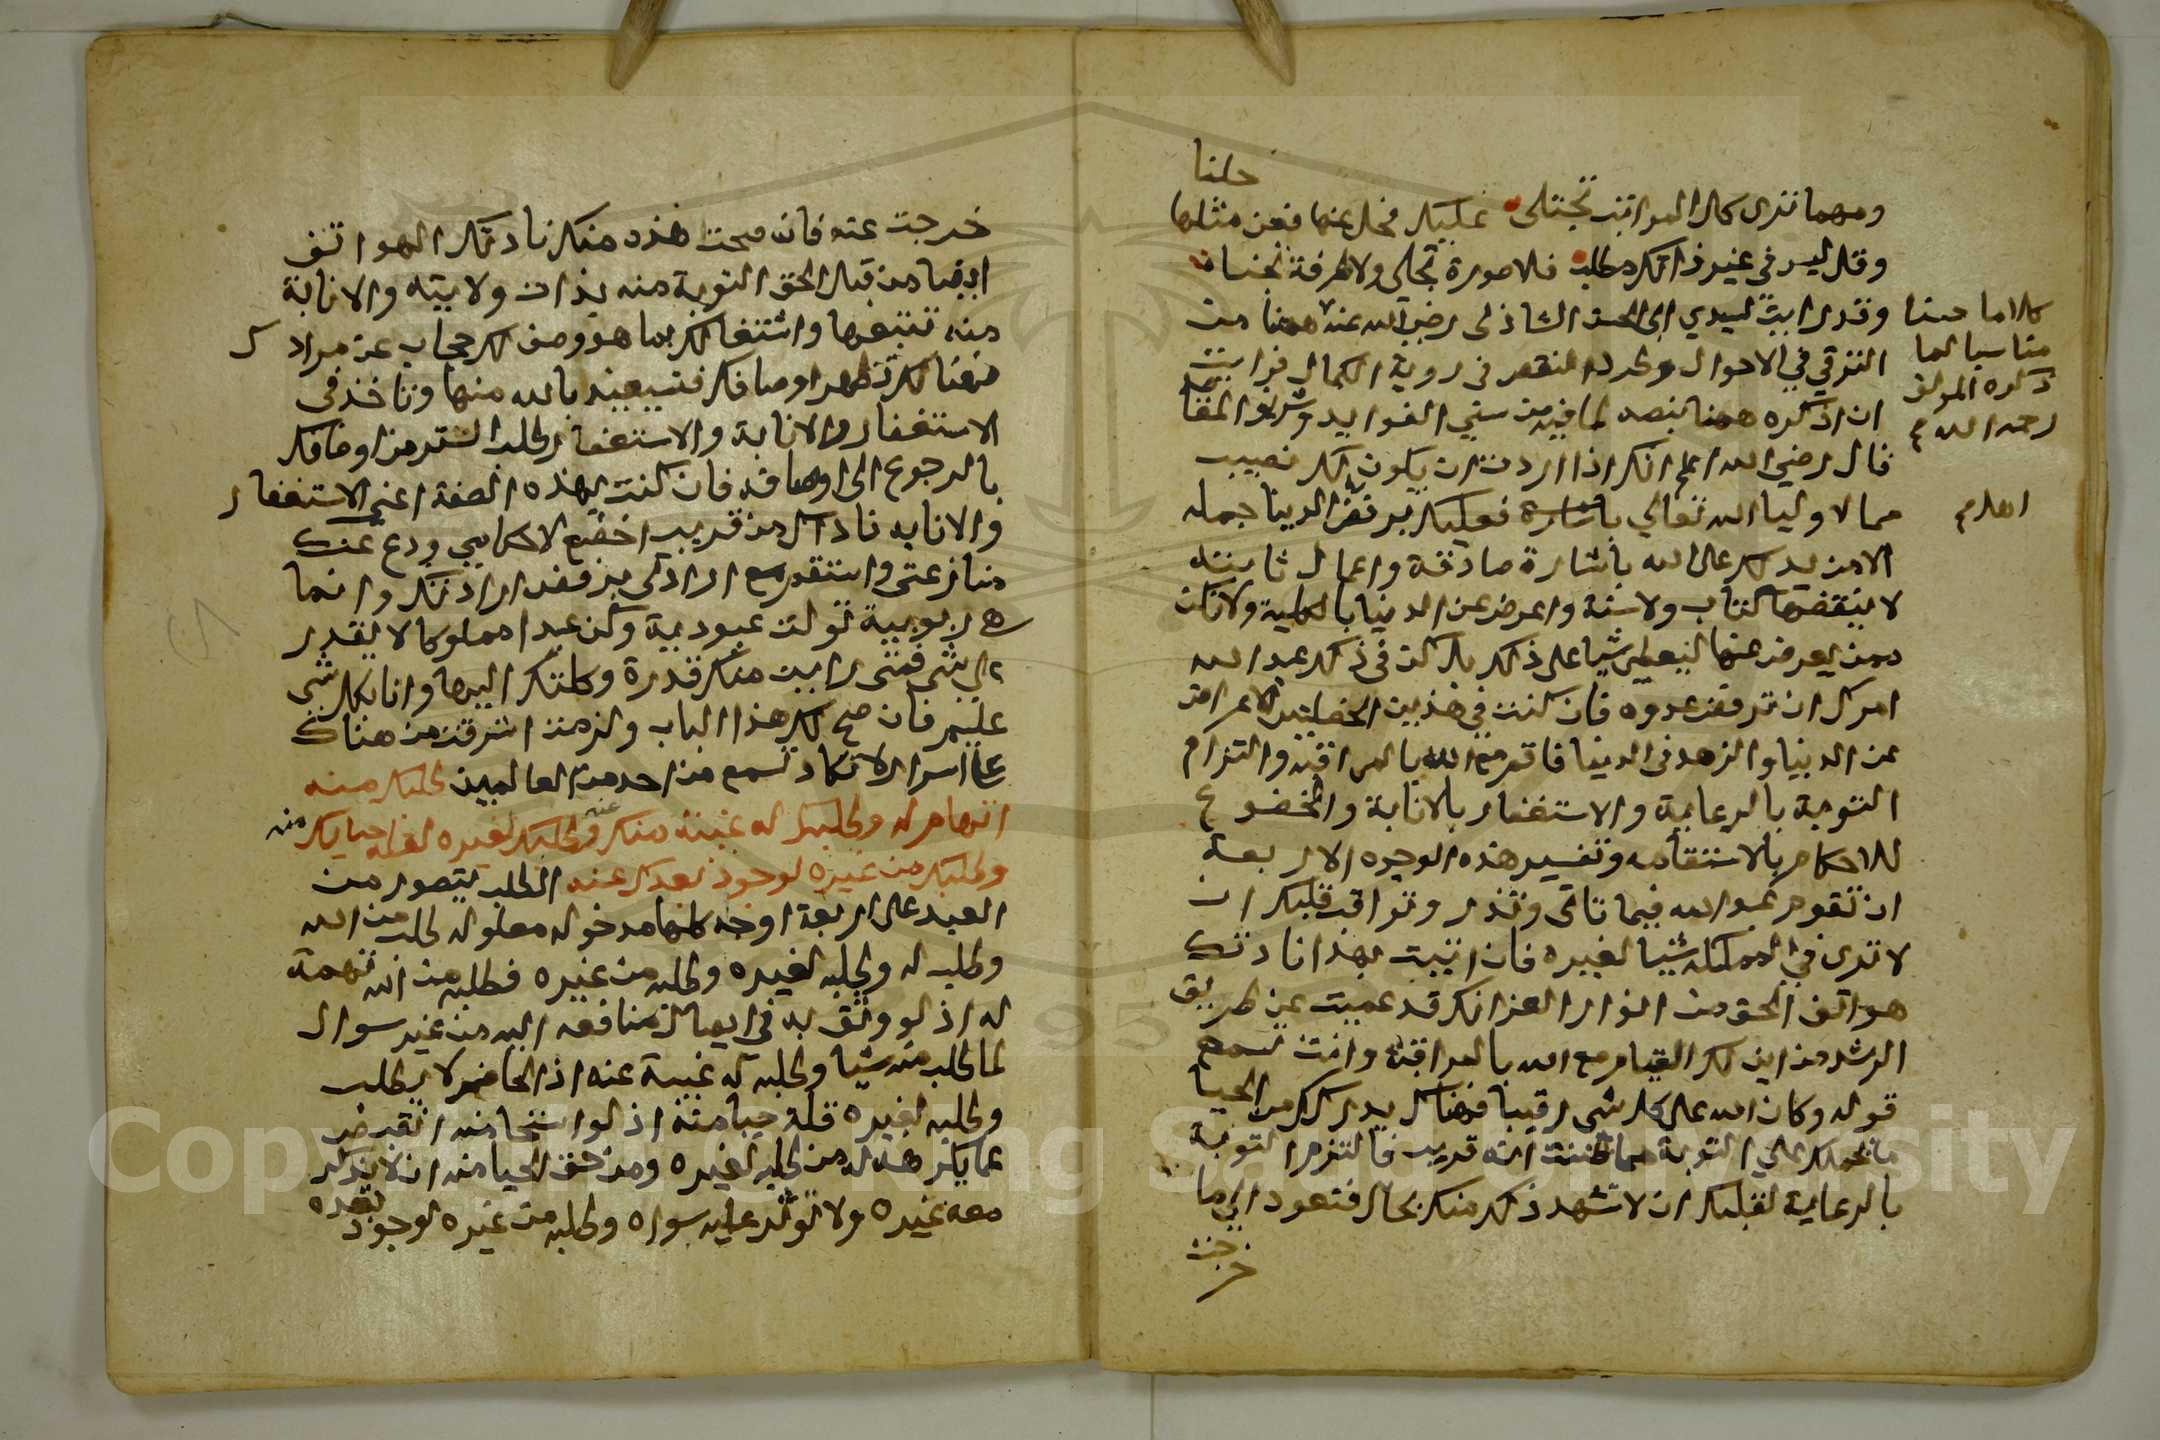 ومهما ترى كل المراتب تجتلى عليك فحل عنها فعن مثلها
حلنا
وقل ليس في غير ذاتك مطلب فلا صورة تجلى ولا طرفة تجنى
وقد رايت لسيدي ابي الحسن الشاذلي رضي الله عنه ههنا من
الترقي في الاحوال وطرد النقص في روية الكمال فرايت
ان اذكره ههنا بنصه لما فيه من سني الفوايد وشريف المقا
صد
قال رضي الله اعلم انك اذا اردت ان يكون لك نصيب
مما لاوليا الله تعالي باشارة فعليك برفض الدنيا جملة
الا من يدلك على الله باشارة صادقة واعمال ثابتة
لا ينقضها كتاب ولا سنة واعرض عن الدنيا بالكلية ولا تكن
ممن يعرض عنها ليعطى شيا على ذلك بل كن في ذلك عبد الله
امرك ان ترفض عدوه فان كنت في هذين الخصلتين الاعراض
عن الدنيا والزهد في الدنيا فاقم مع الله بالمراقبة والتزام
التوبة بالرعاية والاستغفار بالانابة والخضوع
للاحكام بالاستقامه وتفسير هذه الوجوه الاربعة
ان تقوم عبد الله فيما تاتى وتذر وتراقب قلبك ان
لا ترى في المملكة شيا لغيره فان اتيت بهذا نادتك
هواتف الحق من انوار العز انك قد عميت عن طريق
الرشد من اين لك القيام مع الله بالمراقبة وانت تسمع
قوله وكان الله على كل شى رقيبا فهناك يدركك من الحيا
ما يحملك على التوبة مما ظننت انه قريب فالتزم التوبة
بالرعاية لقلبك ان لا تشهد ذلك منك بحال فتعود الى ما
خرجت
كلاما حسنا
مناسبا لما
ذكره المولف
رحمه الله م
خرجت عنه فان صحت هذه منك نادتك الهواتف
ايضا من قبل الحق التوبة منه بدات ولا بيته والانابة
منه تتبعها واشتغالك بما هو وصف لك حجاب عن مراد ك
فهناك تظهر اوصافك فتستعيذ بالله منها وتاخذ في
الاستغفار والانابة والاستغفار طلب الستر من اوصافك
بالرجوع الى اوصافه فان كنت بهذه الصفة اعني الاستغفار
والانابه ناداك من قريب اخضع لاحكامي ودع عنك
منازعتي واستقم مع ارادتي برفض ارادتك وانما
هي ربوبية تولت عبودية وكن عبدا مملوكا لا يقدر
على شى فمتى رايت منك قدرة وكلتك اليها وانا بكل شى
عليم فان صح لك هذا الباب ولزمت اشرفت من هناك
على اسرار لا تكاد تسمع من احد من العالمين طلبك منه
اتهام له وطلبك له غيبة منك عنه وطلبك لغيره لقلة حيايك منه
وطلبك من غيره لوجود بعدك عنه الطلب يتصور من
العبد على اربعة اوجه كلها مدخوله معلوله طلب من الله
وطلب له وطلب لغيره وطلب من غيره فطلبه من الله تهمة
له اذ لو وثق به في ايصال منافعه اليه من غير سوال
لما طلب منه شيا وطلبه له غيبة عنه اذ الحاضر لا يطلب
وطلبه لغيره قلة حيا منه اذ لو استحا منه انقبض
عما يكرهه له من طلبه لغيره ومن حق الحيا منه ان لا يذكر
معه غيره ولا يوثر عليه سواه وطلبه من غيره لوجود بعده